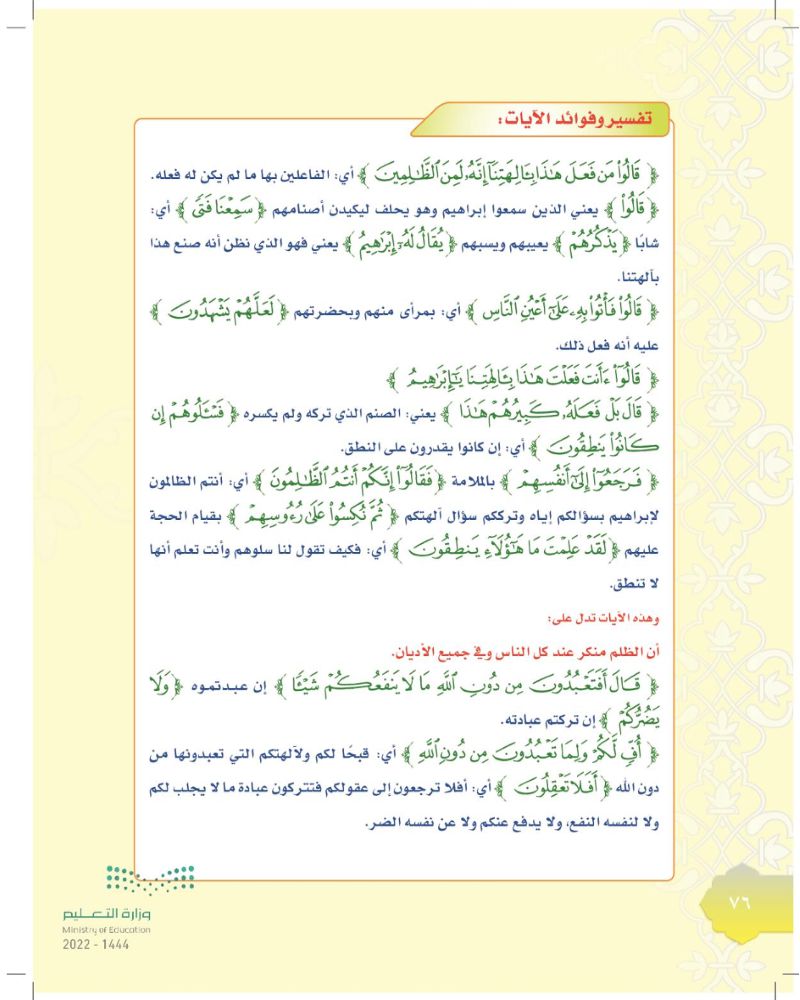 تفسير وفوائد الآيات:
﴿ قَالُوا۟ مَن فَعَلَ هَـٰذَا بِـَٔالِهَتِنَآ إِنَّهُۥ لَمِنَ ٱلظَّـٰلِمِينَ ﴾ أي: الفاعلين بها ما لم يكن له فعله.
﴿ قَالُوا۟ ﴾ يعني الذين سمعوا إبراهيم وهو يحلف ليكيدن أصنامهم ﴿ سَمِعْنَا فَتًى ﴾ أي:
شابًا ﴿ يَذْكُرُهُمْ ﴾ يعيبهم ويسبهم ﴿ يُقَالُ لَهُۥٓ إِبْرَٰهِيمُ ﴾ يعني فهو الذي نظن أنه صنع هذا
بآلهتنا.
﴿ قَالُوا۟ فَأْتُوا۟ بِهِۦ عَلَىٰٓ أَعْيُنِ ٱلنَّاسِ ﴾ أي: بمرأى منهم وبحضرتهم ﴿ لَعَلَّهُمْ يَشْهَدُونَ ﴾
عليه أنه فعل ذلك.
﴿ قَالُوٓا۟ ءَأَنتَ فَعَلْتَ هَـٰذَا بِـَٔالِهَتِنَا يَـٰٓإِبْرَٰهِيمُ ﴾
﴿ قَالَ بَلْ فَعَلَهُۥ كَبِيرُهُمْ هَـٰذَا ﴾ يعني: الصنم الذي تركه ولم يكسره ﴿ فَسْـَٔلُوهُمْ إِن
كَانُوا۟ يَنطِقُونَ ﴾ أي: إن كانوا يقدرون على النطق.
﴿ فَرَجَعُوٓا۟ إِلَىٰٓ أَنفُسِهِمْ ﴾ بالملامة ﴿ فَقَالُوٓا۟ إِنَّكُمْ أَنتُمُ ٱلظَّـٰلِمُونَ ﴾ أي: أنتم الظالمون
لإبراهيم بسؤالكم إياه وترككم سؤال آلهتكم ﴿ ثُمَّ نُكِسُوا۟ عَلَىٰ رُءُوسِهِمْ ﴾ بقيام الحجة
عليهم ﴿ لَقَدْ عَلِمْتَ مَا هَـٰٓؤُلَآءِ يَنطِقُونَ ﴾ أي: فكيف تقول لنا سلوهم وأنت تعلم أنها
لا تنطق.
وهذه الآيات تدل على:
أن الظلم منكر عند كل الناس وفي جميع الأديان.
﴿ قَالَ أَفَتَعْبُدُونَ مِن دُونِ ٱللَّهِ مَا لَا يَنفَعُكُمْ شَيْـًٔا ﴾ إن عبدتموه ﴿ وَلَا
يَضُرُّكُمْ ﴾ إن تركتم عبادته.
﴿ أُفٍّ لَّكُمْ وَلِمَا تَعْبُدُونَ مِن دُونِ ٱللَّهِ ﴾ أي: قبحًا لكم ولآلهتكم التي تعبدونها من
دون الله ﴿ أَفَلَا تَعْقِلُونَ ﴾ أي: أفلا ترجعون إلى عقولكم فتتركون عبادة ما لا يجلب لكم
ولا لنفسه النفع، ولا يدفع عنكم ولا عن نفسه الضر.
٧٦
وزارة التعليم
Ministry of Education
2022 - 1444